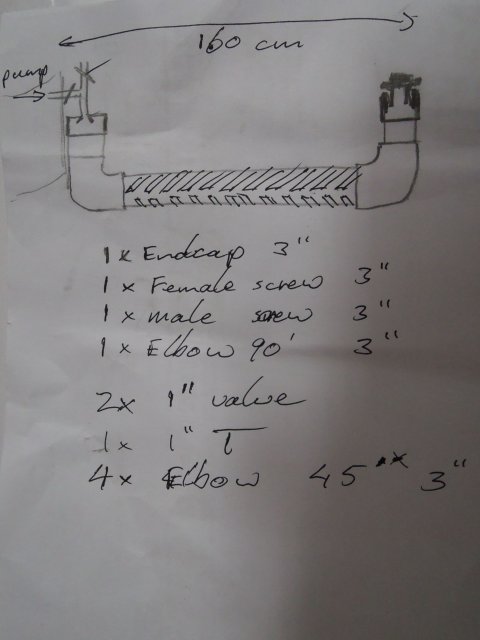 160 cm
pump
1x Endcap 3"
1x Female screw 3"
1x male screw 3"
1x Elbow 90' 3"
2x 1" valve
1x 1" T
4x Elbow 45 3"